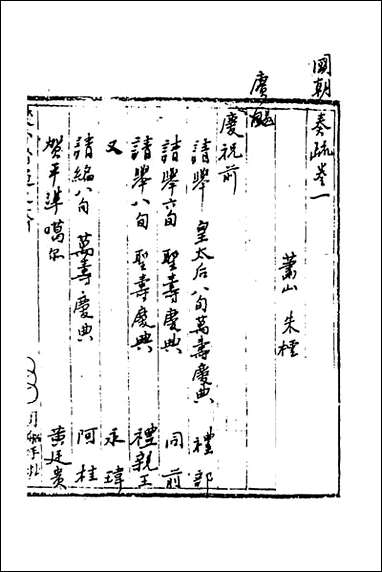 國朝
奏疏卷一
蕭山 朱櫺
賡颺
慶祝前
請舉 皇太后八旬萬壽慶典 禮部
請舉六旬 聖壽慶典 同前
請舉八旬 聖壽慶典 禮親王
又 永瑋
請編八旬 萬壽慶典 阿桂
賀平準噶尔 黃廷貴